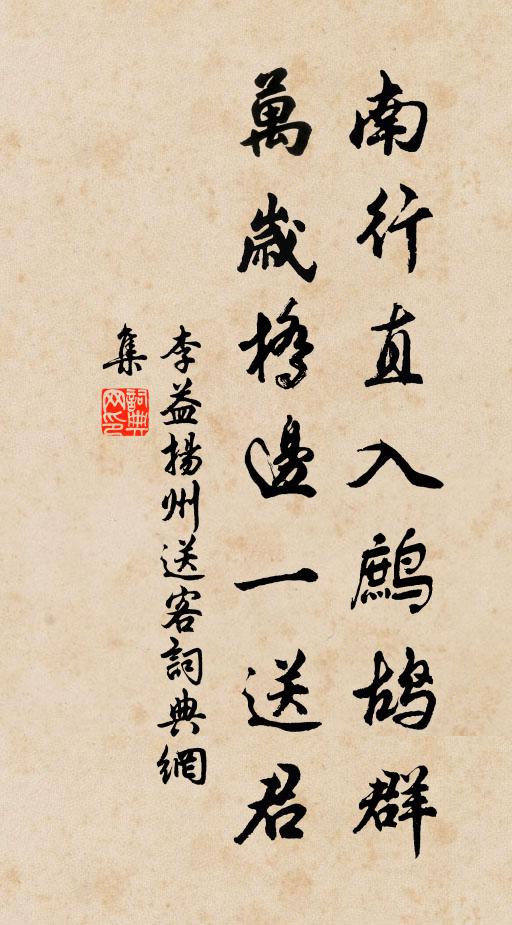 南行直入鷓鴣群
萬歲橋邊一送君
李益揚州送客詞典網
集
詞典
网印